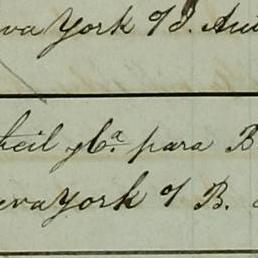 va York o/ J. Aut
heil y Ca. para B
eva York o/ B.